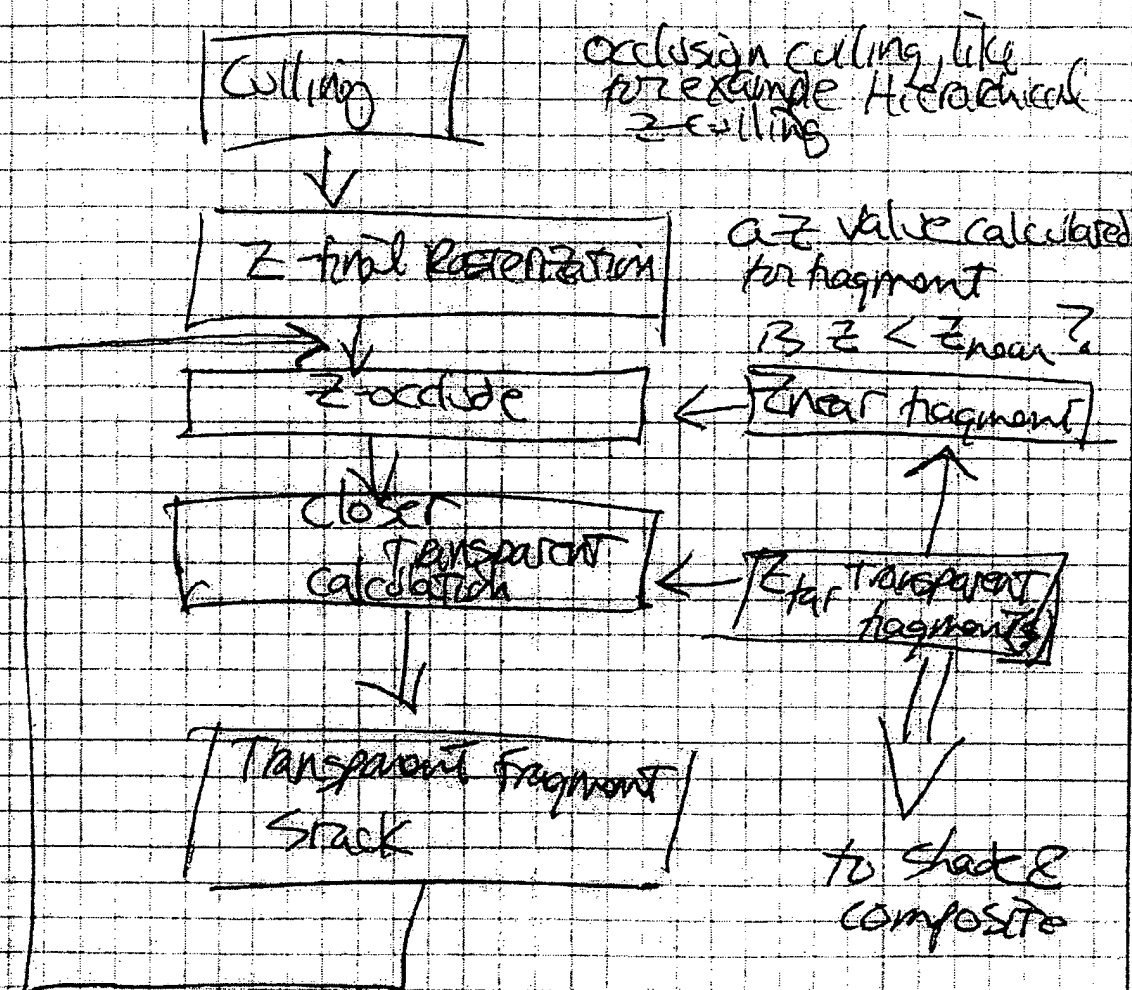 Culling
occlusion culling, like
for example Hierarchical
Z-culling
Z-final Rasterization
a Z value calculated
for fragment
is Z < Znear?
Z-occlude
Znear fragment
closer
transparent
calculation
Zfar Transparent
fragment(s)
Transparent Fragment
Stack
to Shade &
composite